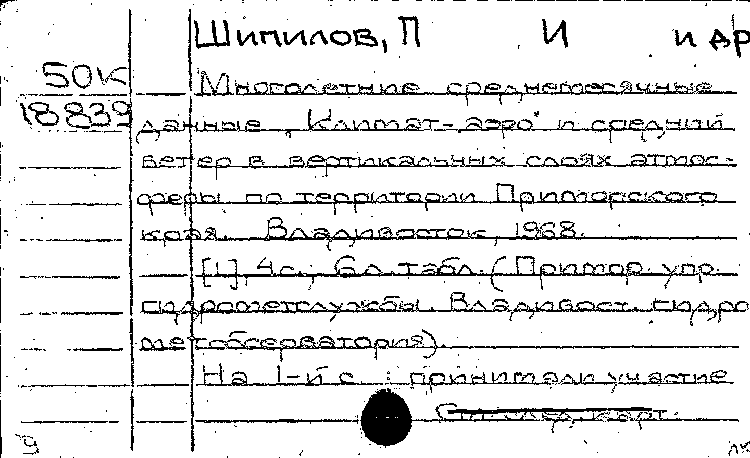 Шипилов, П И и др
50К Многолетние среднемесячные
18839 данные „Климат-аэро" и средний
ветер в вертикальных слоях атмос-
феры по территории Приморского
края. Владивосток, 1968.
[1], 4с., 6л. табл. (Примор. упр.
гидрометслужбы. Владивост. гидро
метобсерватория).
На 1-й с. : принимали участие
См. след. карт.
9